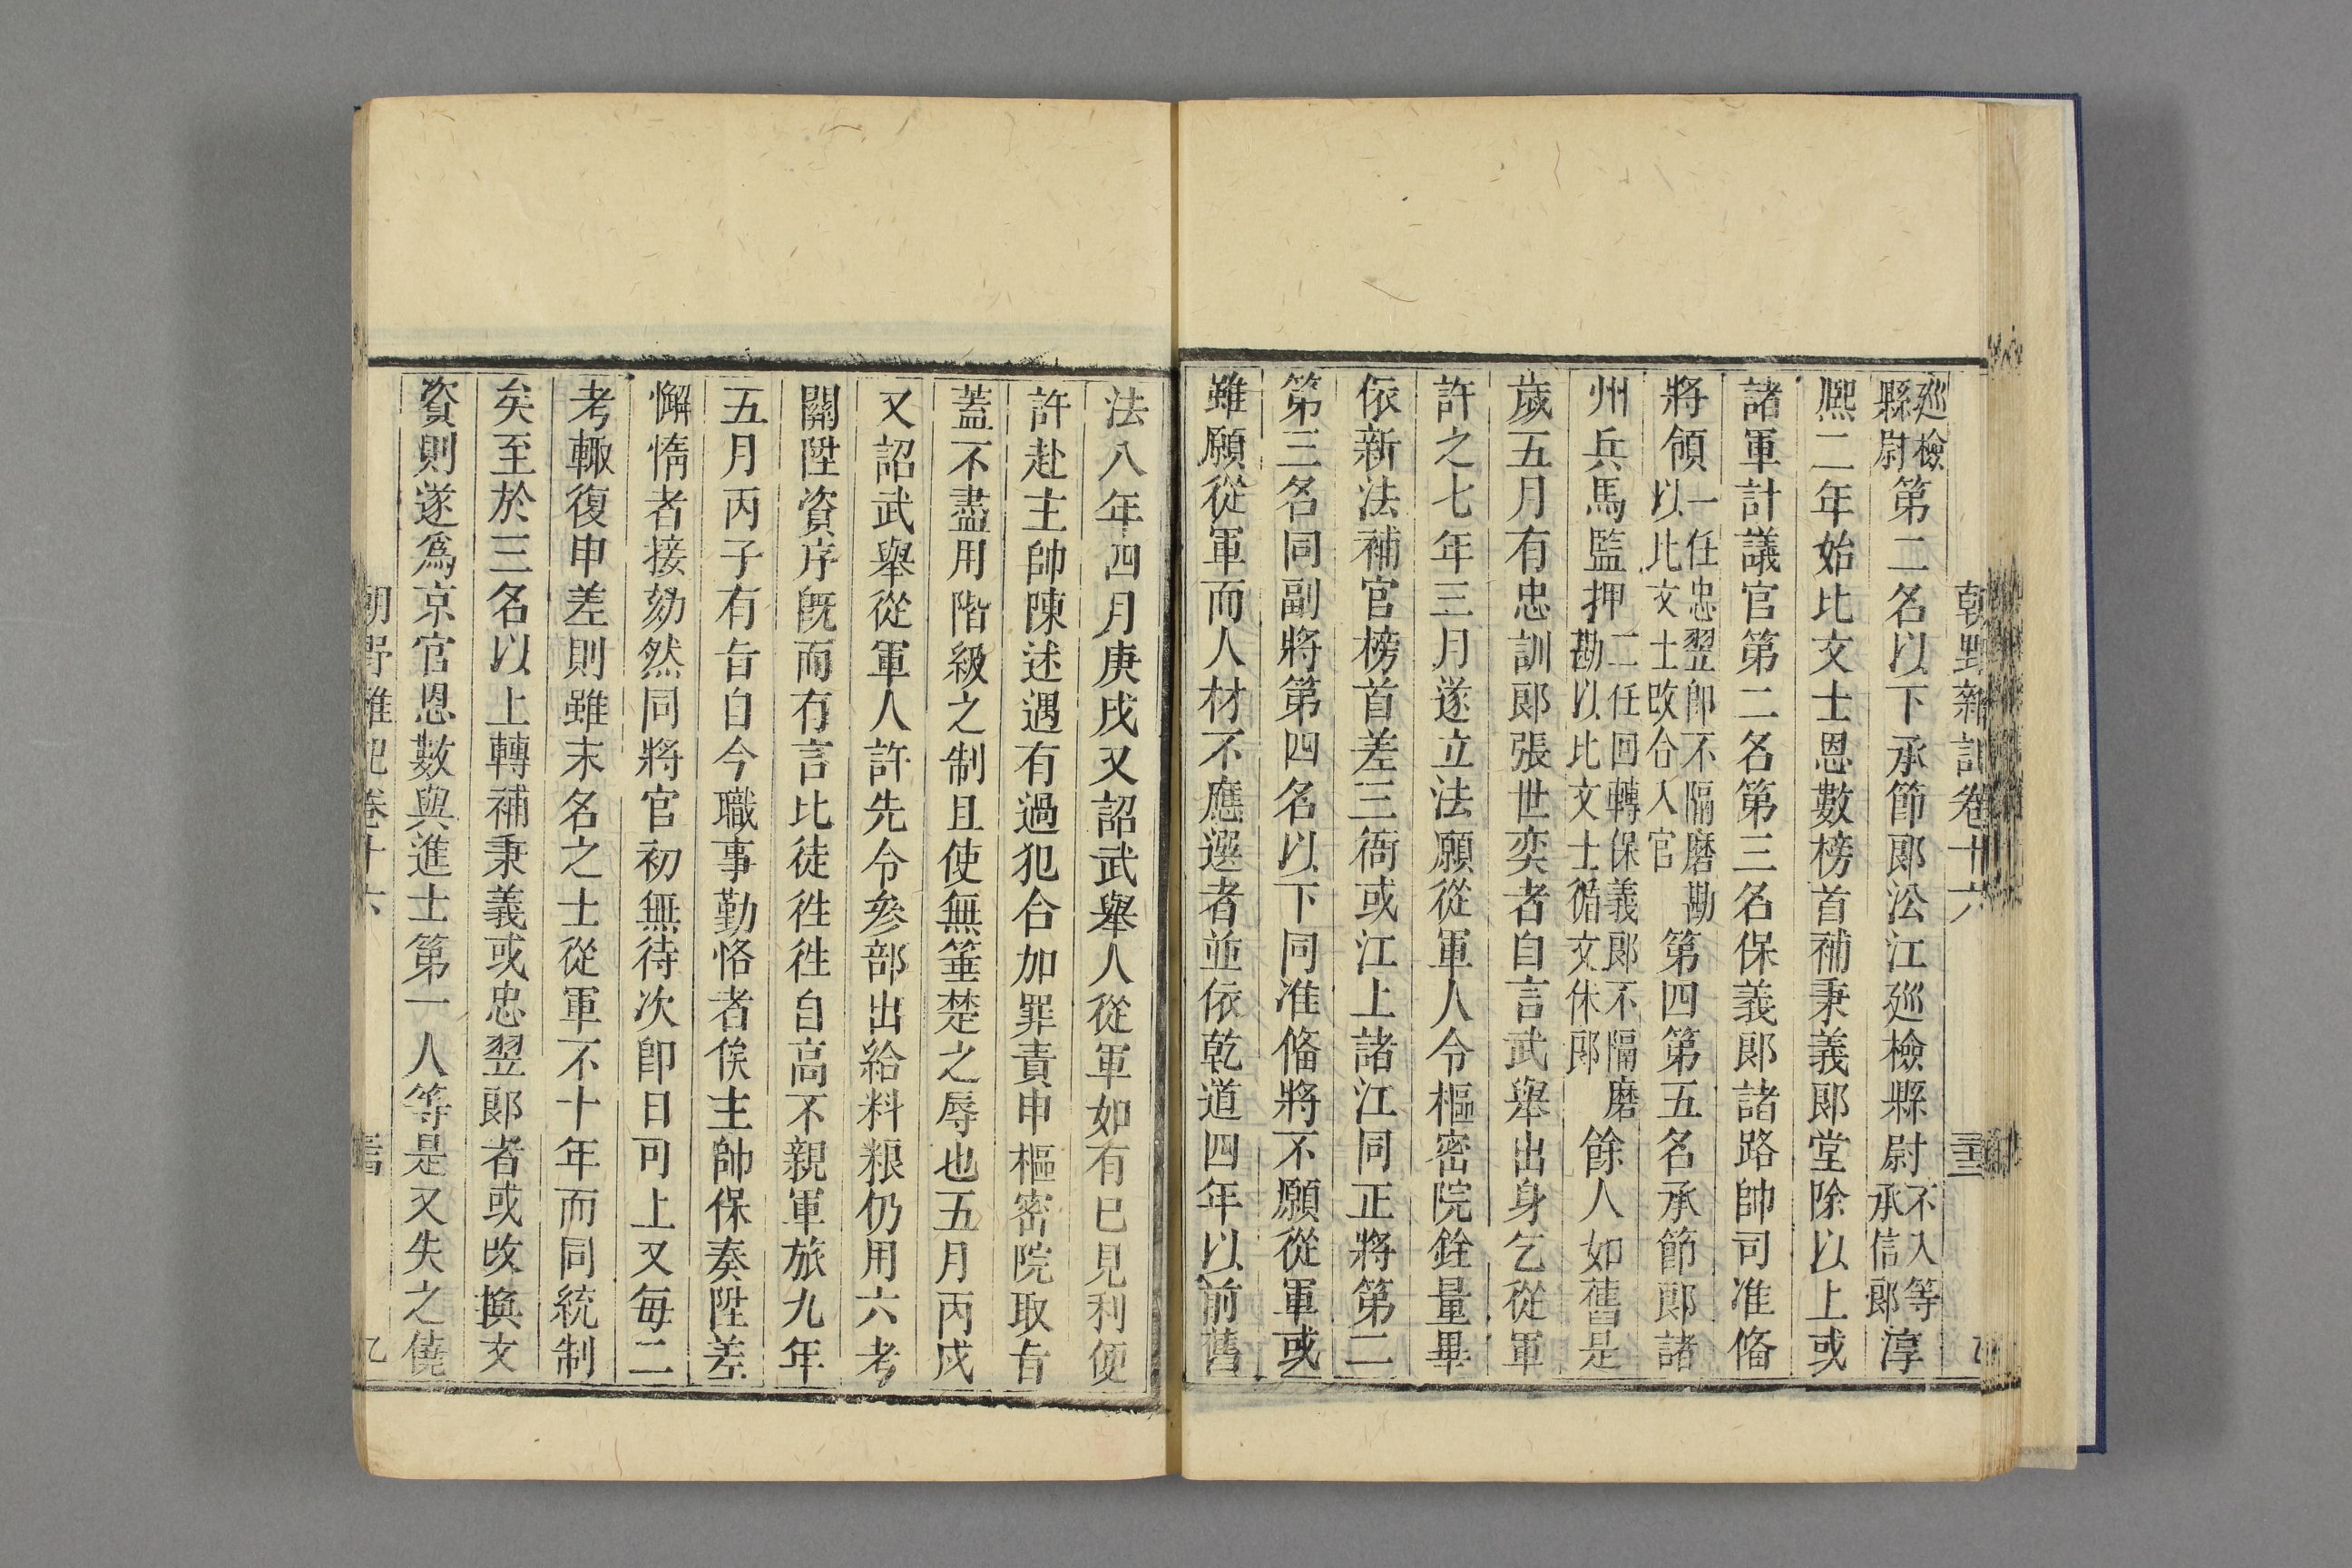 朝野雜記卷十六
巡檢縣尉第二名以下承節郎沿江巡檢縣尉不入等承信郎淳
熈二年始比文士恩數榜首補秉義郎堂除以上或
諸軍計議官第二名第三名保義郎諸路帥司准俻
將領一任忠翌郎不隔磨勘以比文士改合入官第四第五名承節郎諸
州兵馬監押二任回轉保義郎不隔磨勘以比文士循文林郎餘人如舊是
歲五月有忠訓郎張世奕者自言武舉出身乞從軍
許之七年三月遂立法願從軍人令樞密院銓量畢
依新法補官榜首差三衙或江上諸江同正將第二
第三名同副將第四名以下同准俻將不願從軍或
雖願從軍而人材不應選者並依乾道四年以前舊
法八年四月庚戌又詔武舉人從軍如有已見利便
許赴主帥陳述遇有過犯合加罪責申樞密院取旨
蓋不盡用階級之制且使無箠楚之辱也五月丙戌
又詔武舉從軍人許先令叅部出給料粮仍用六考
關陞資序旣而有言比徒徃徃自高不親軍旅九年
五月丙子有旨自今職事勤恪者俟主帥保奏陞差
懈惰者按劾然同將官初無待次即日可上又每二
考輙復申差則雖末名之士從軍不十年而同統制
矣至於三名以上轉補秉義或忠翌郎者或改換文
資則遂爲京官恩數與進士第一人等是又失之僥
朝野雜記卷十六